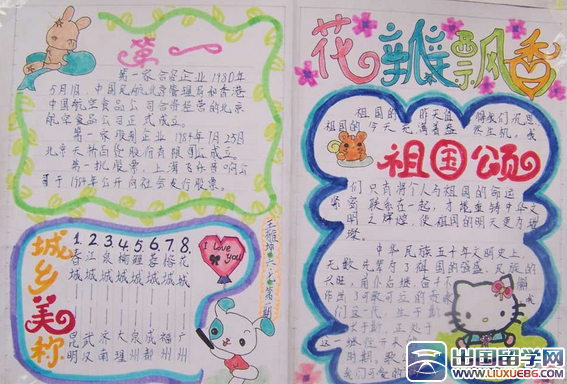 第一
第一家合资企业1980年
5月1日,中国民航北京管理局和香港
中国航空食品公司合资经营的北京
航空食品公司正式成立。
第一家股份企业1984年7月25日
北京天桥百货股份有限公司成立。
第一批股票,上海飞乐音响公
司于1984年公开向社会发行股票。
城乡美称
1.2.3.4.5.6.7.8.
春江泉梅鲤蓉榕花
城城城城城城城城
昆武济大泉成福广
明汉南理州都州州
I love
you
花瓣飘香
祖国的昨天值得我们沉思
祖国的今天充满着盎然生机,我
祖国颂
们只有将个人与祖国的命运
紧密联系在一起,才能重铸中华文
明之辉煌,使祖国的明天更为璀
璨
中华民族五千年文明史上,
无数先辈为了祖国的强盛,民族的
兴旺,
作出了可歌可泣的
们这一代,生于斯
长于斯
时期,
我们可爱的
出国留学网
WWW.LIUXUE86.COM